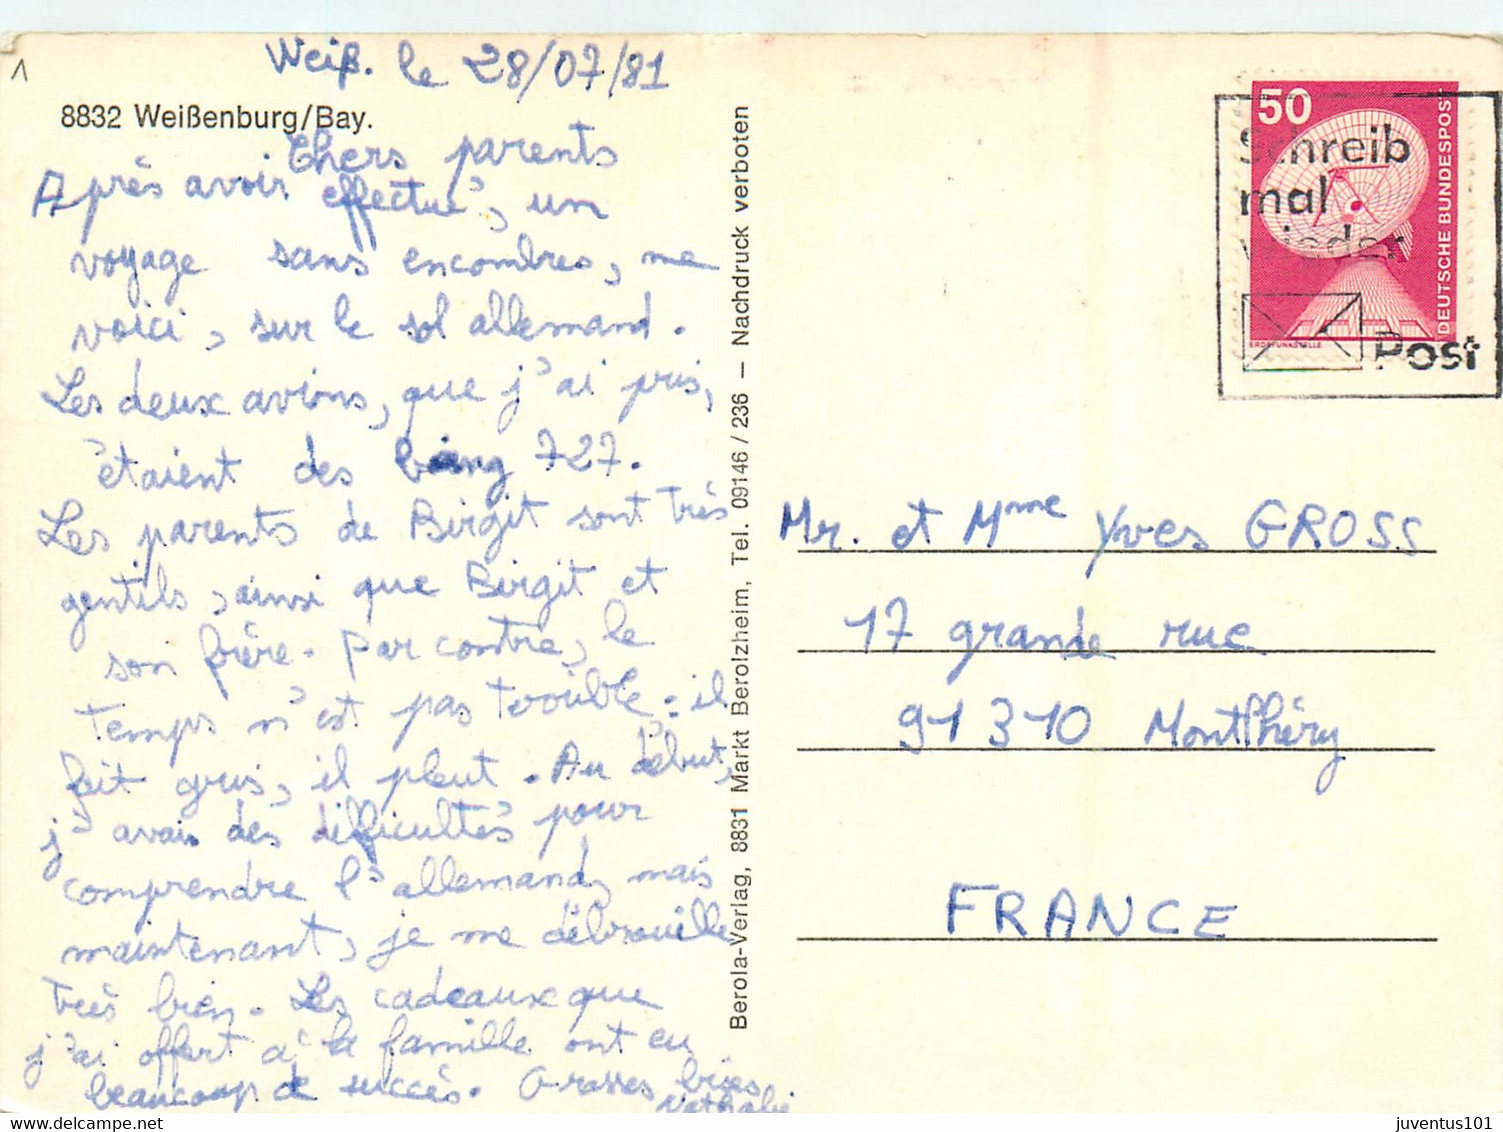 1
Weiß. le 28/07/81
8832 Weißenburg/Bay.
Chers parents
Après avoir effectué, un
voyage sans encombres, me
voici, sur le sol allemand.
Les deux avions, que j'ai pris,
étaient des boing 727.
Les parents de Birgit sont très
gentils, ainsi que Birgit et
son frère. Par contre, le
temps n'est pas terrible : il
fait gris, il pleut. Au début,
j'avais des difficultés pour
comprendre l'allemand, mais
maintenant, je me débrouille
très bien. Les cadeaux que
j'ai offert à la famille ont eu
beaucoup de succès. Grosses bises
Nathalie
Berola-Verlag, 8831 Markt Berolzheim, Tel. 09146 / 236 — Nachdruck verboten
50
DEUTSCHE BUNDESPOST
ERDEFUNKSTELLE
Schreib
mal
wieder
Post
Mr. et Mme Yves GROSS
17 grande rue
91310 Montlhéry
FRANCE
www.delcampe.net
juventus101